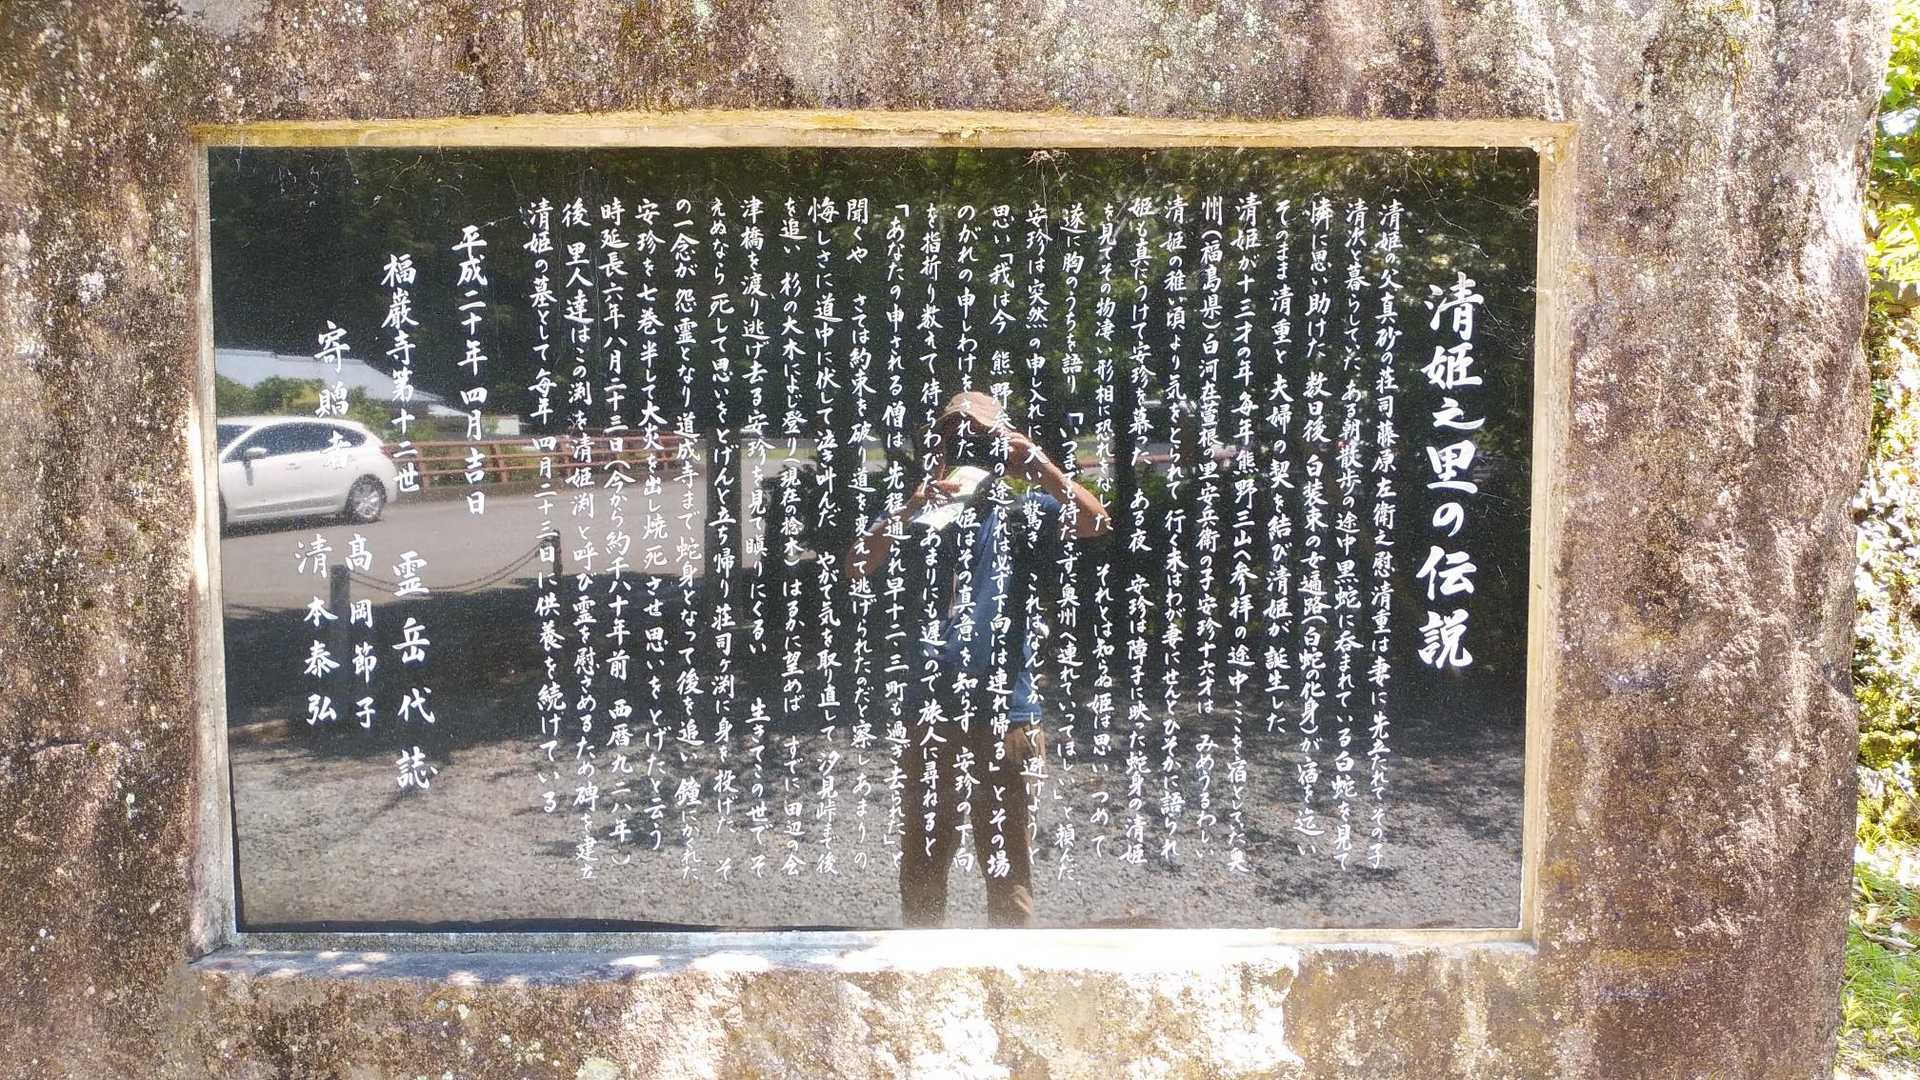 清姫之里の伝説
清姫の父真砂の荘司藤原左衛之慰清重は妻に先立たれてその子
清次と暮らしてた ある朝散歩の途中黒蛇に呑まれている白蛇を見て
憐に思い助けた 数日後 白装束の女遍路(白蛇の化身)が宿を迄い
そのまま清重と夫婦の契を結び清姫が誕生した
清姫が十三才の年毎年熊野三山へ参拝の途中ここを宿としてた奥
州(福島県)白河在萱根の里安兵衛の子安珍十六才は みめうるわしい
清姫の稚い頃より気をとられて 行く末はわが妻にせんとひそかに語られ
姫も真にうけて安珍を慕った ある夜 安珍は障子に映った蛇身の清姫
を見てその物凄い形相に恐れをなした それとは知らぬ姫は思いつめて
遂に胸のうちを語り 「いつまでも待たさずに奥州へ連れていってほしい」と頼んだ
安珍は突然の申し入れに大いに驚き これはなんとかして避けようと
思い「我は今 熊野参拝の途なれば必ず下向には連れ帰る」とその場
のがれの申しわけをされた 姫はその真意を知らず 安珍の下向
を指折り数えて待ちわびたがあまりにも遅いので旅人に尋ねると
「あなたの申される僧は 先程通られ早十二・三町も過ぎ去られた」と
聞くや さては約束を破り道を変えて逃げられたのだと察しあまりの
悔しさに道中に伏して泣き叫んだ やがて気を取り直して汐見峠まで後
を追い 杉の大木によじ登り(現在の捻木)はるかに望めば すでに田辺の会
津橋を渡り逃げ去る安珍を見て瞋りにくるい 生きてこの世でそ
えぬなら死して思いをとげんと立ち帰り荘司ヶ渕に身を投げた そ
の一念が怨霊となり道成寺まで蛇身となって後を追い 鐘にかくれた
安珍を七巻半して大炎を出し焼死させ思いをとげたと云う
時延長六年八月二十三日(今から約千八十年前 西暦九二八年)
後 里人達はこの渕を清姫渕と呼び霊を慰さめるため碑を建立
清姫の墓として毎年四月二十三日に供養を続けている
平成二十年四月吉日
福巌寺第十二世 霊岳代誌
寄贈者 高岡節子
清本泰弘